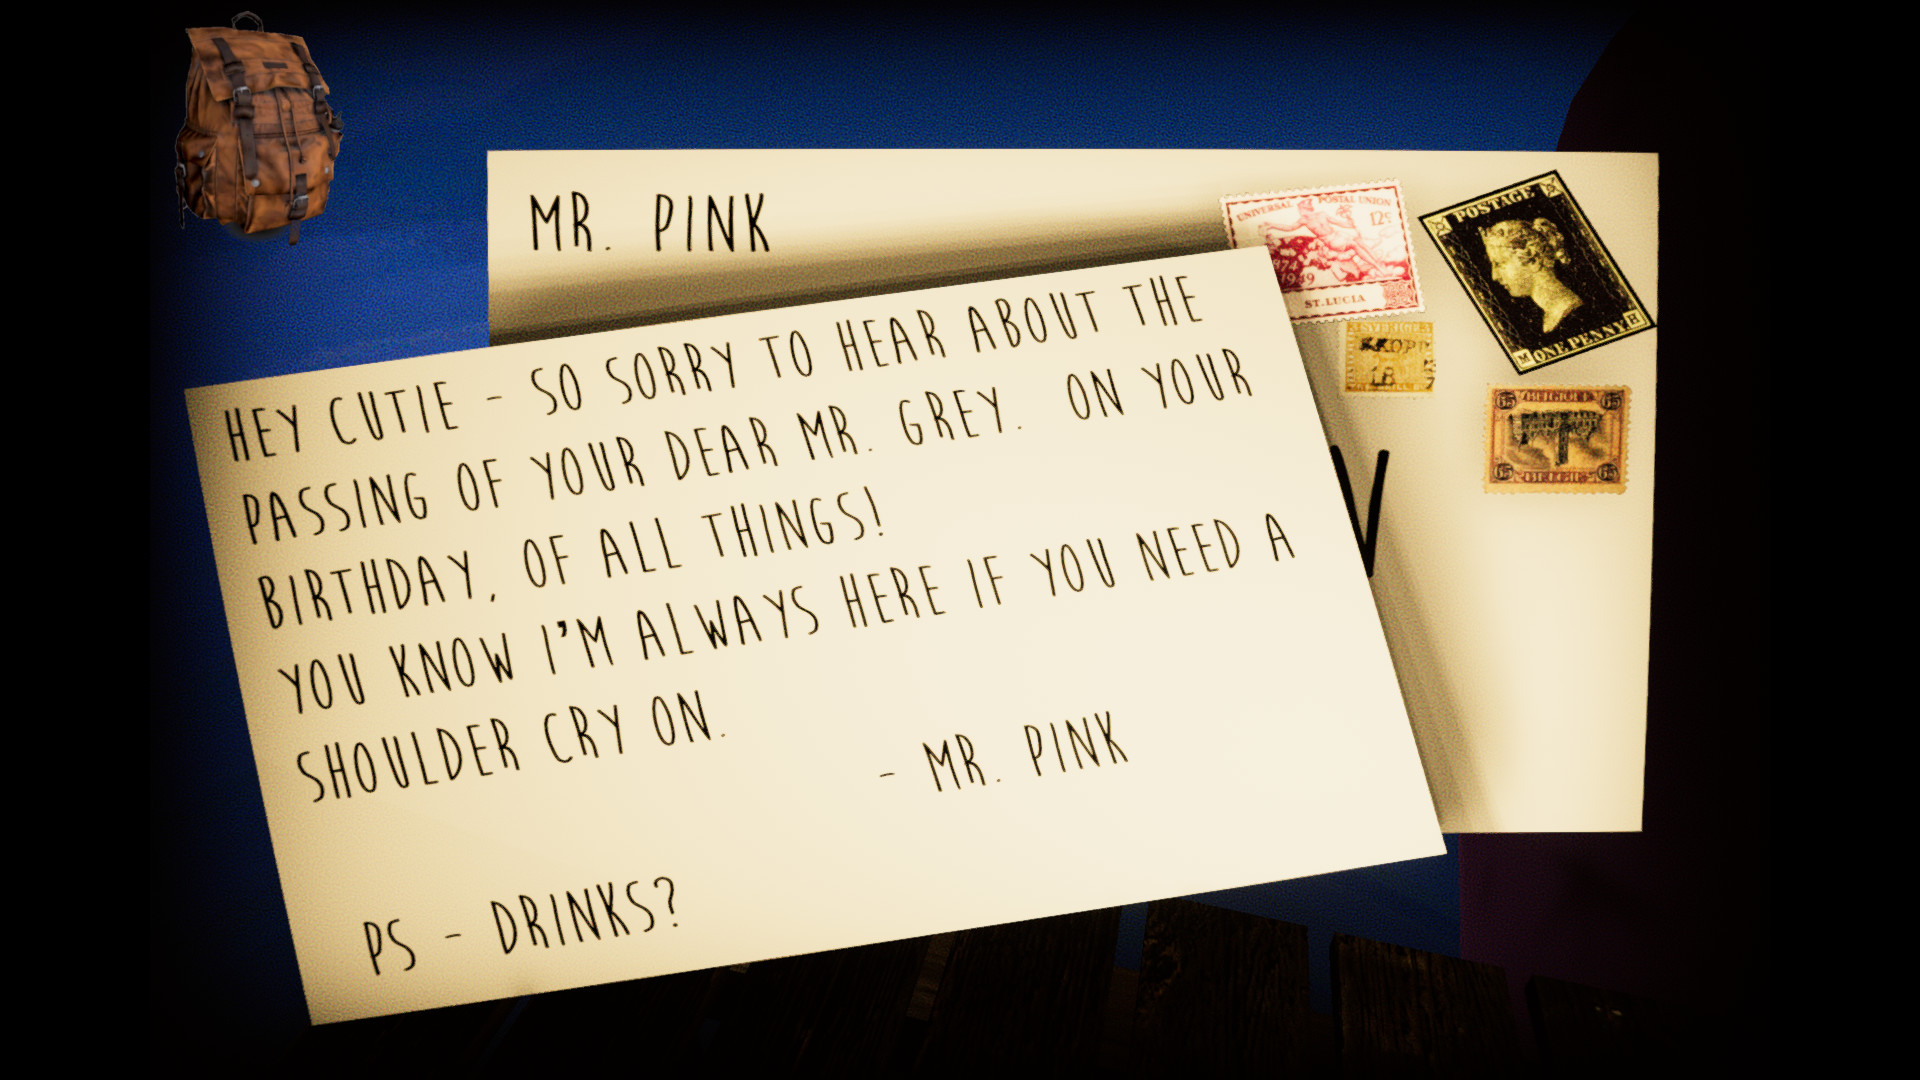 MR. PINK
UNIVERSAL POSTAL UNION
12c
1874
1949
ST. LUCIA
POSTAGE
M ONE PENNY H
SVERIGE
KKOPP
18
65 BELGIQUE 65
65 BELGIE 65
HEY CUTIE - SO SORRY TO HEAR ABOUT THE
PASSING OF YOUR DEAR MR. GREY. ON YOUR
BIRTHDAY, OF ALL THINGS!
YOU KNOW I'M ALWAYS HERE IF YOU NEED A
SHOULDER CRY ON.
- MR. PINK
PS - DRINKS?